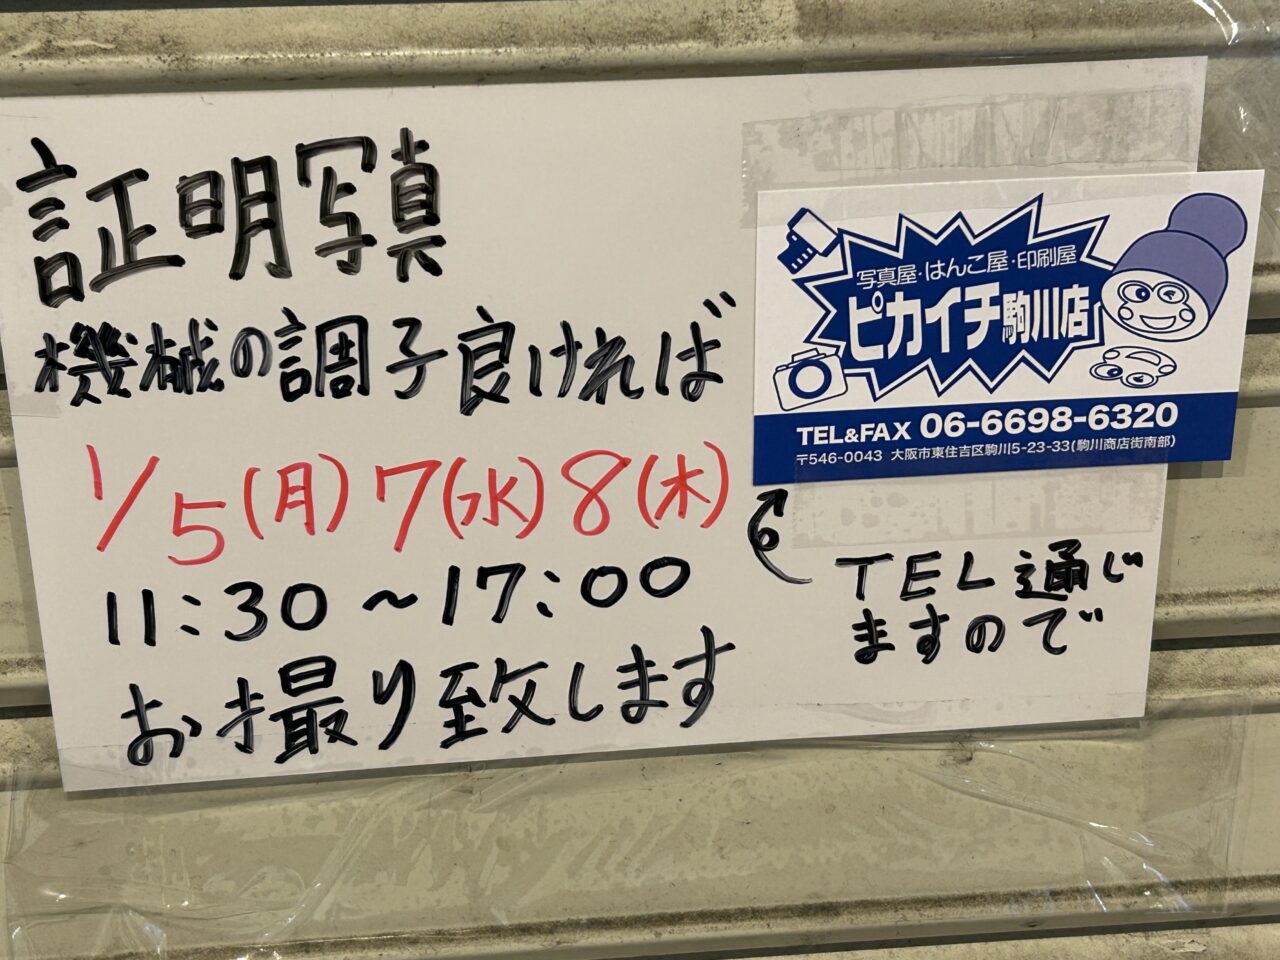 証明写真
機械の調子良ければ
1/5(月)7(水)8(木)
11:30～17:00
お撮り致します
写真屋・はんこ屋・印刷屋
ピカイチ駒川店
TEL&FAX 06-6698-6320
〒546-0043 大阪市東住吉区駒川5-23-33(駒川商店街南部)
TEL通じ
ますので